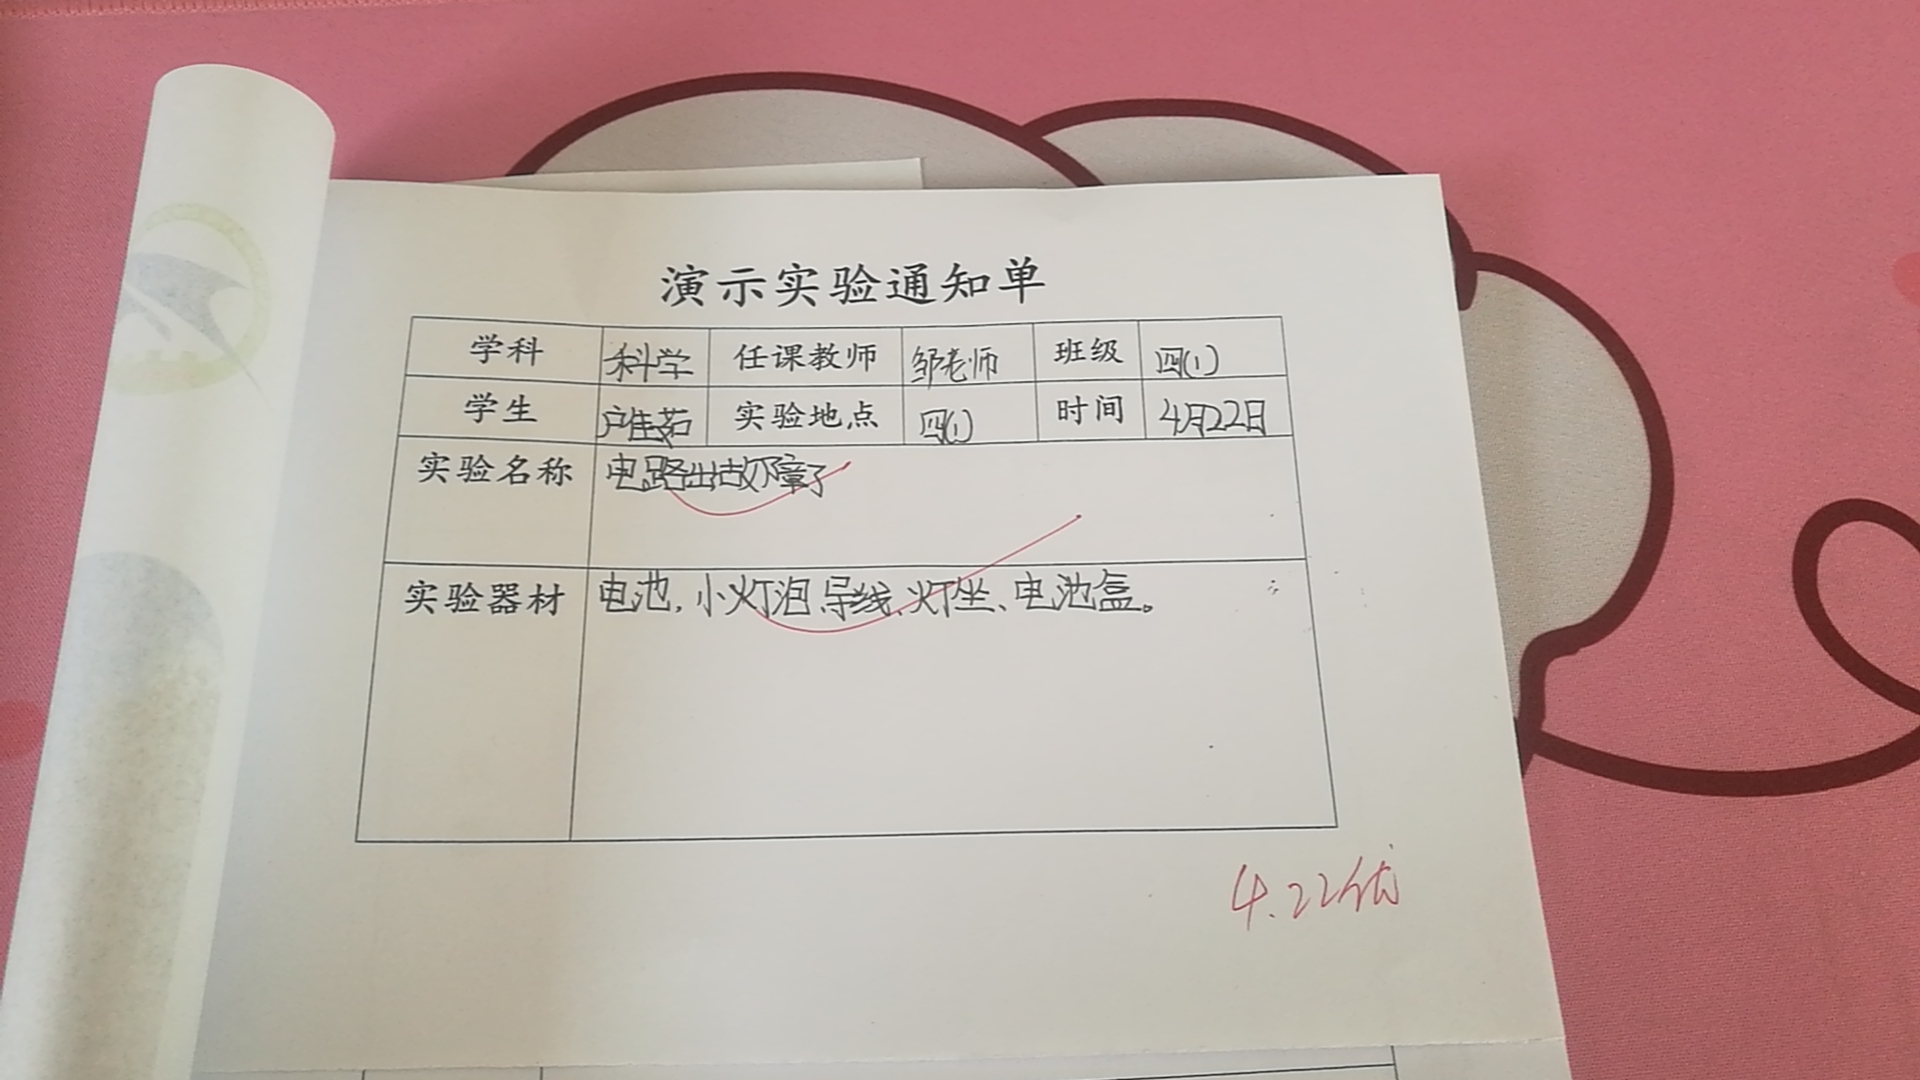 演示实验通知单
学科 科学 任课教师 邹老师 班级 四(1)
学生 卢佳茹 实验地点 四(1) 时间 4月22日
实验名称 电路出故障了
实验器材 电池,小灯泡、导线、灯坐、电池盒。
4.22优